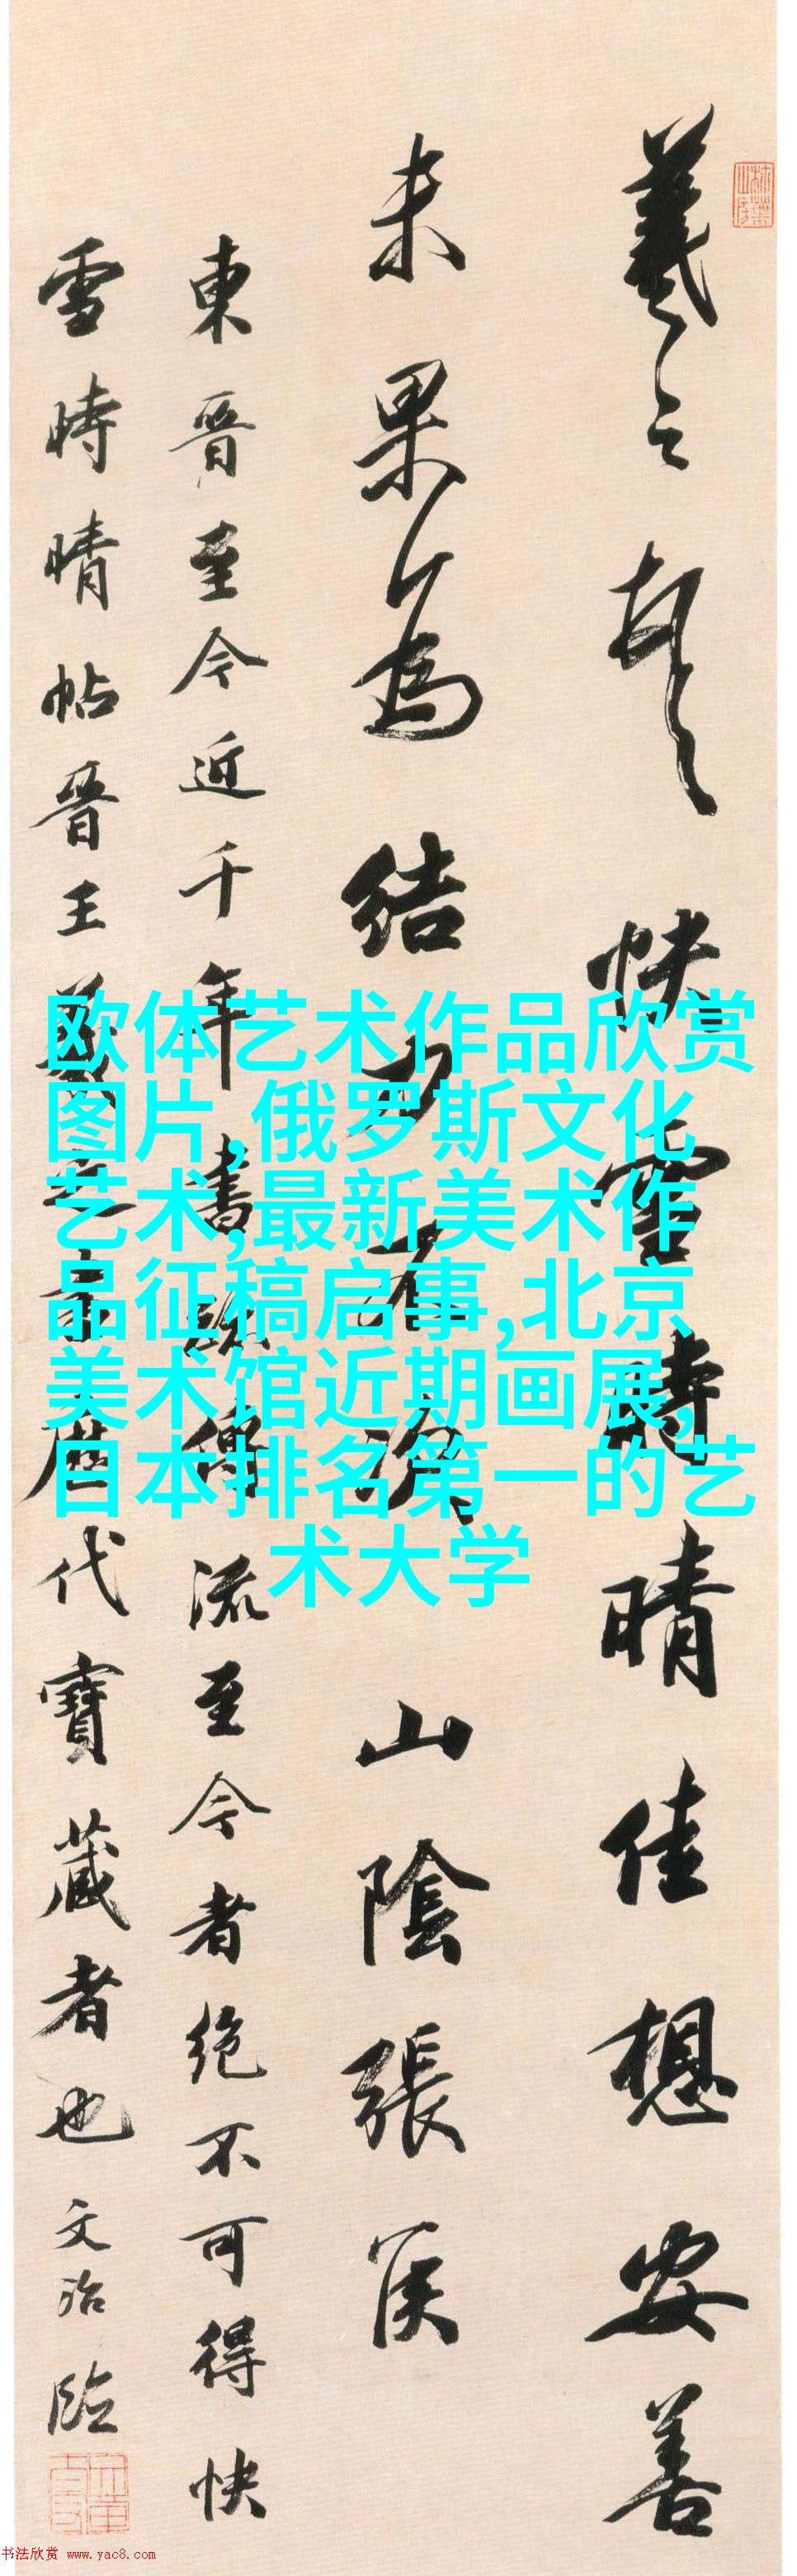 羲之頓首快雪時晴佳想安善
未果為結力不次山陰張侯
東晉至今近千年書蹟傳流至今者絕不可得快
雪時晴帖晉王羲之書歷代寶藏者也文治臨
欧体艺术作品欣赏
图片,俄罗斯文化
艺术,最新美术作
品征稿启事,北京
美术馆近期画展,
日本排名第一的艺
术大学
书法欣赏 www.yac8.com